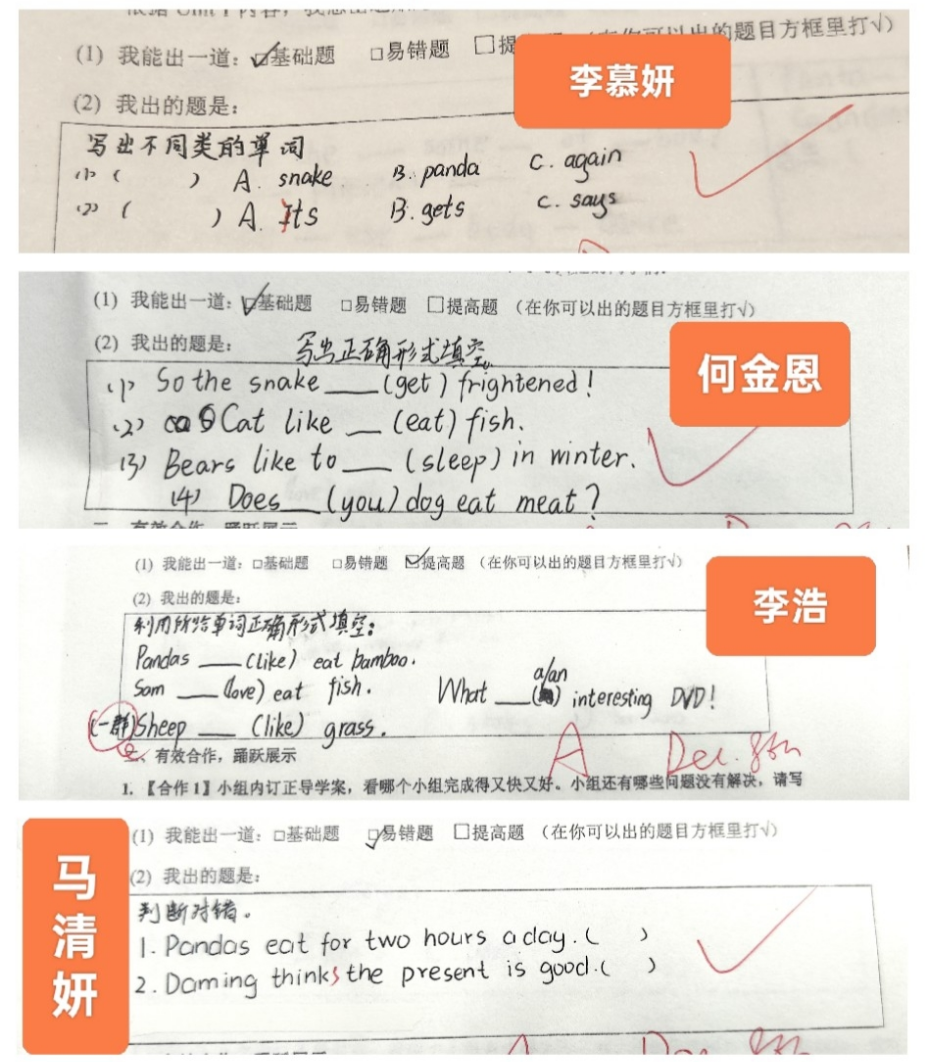 (1) 我能出一道：☑基础题 □易错题 □提
题目方框里打√）
李慕妍
(2) 我出的题是：
写出不同类的单词
(1) ( ) A. snake B. panda C. again
(2) ( ) A. Its B. gets C. says
(1) 我能出一道：☑基础题 □易错题 □提高题 （在你可以出的题目方框里打√）
(2) 我出的题是：
写出正确形式填空。
何金恩
(1) So the snake ___ (get) frightened!
(2) Cat like __ (eat) fish.
(3) Bears like to ___ (sleep) in winter.
(4) Does ___ (you) dog eat meat?
(1) 我能出一道：□基础题 □易错题 ☑提高题 （在你可以出的题目方框里打√）
(2) 我出的题是：
李浩
利用所给单词正确形式填空：
Pandas ___ (like) eat bamboo.
Sam ___ (love) eat fish.
What ___ (a/an) interesting DVD!
(一群)Sheep ___ (like) grass.
A Dec. 8th
二、有效合作，踊跃展示
1.【合作1】小组内订正导学案，看哪个小组完成得又快又好。小组还有哪些问题没有解决，请写
马清妍
(1) 我能出一道：□基础题 ☑易错题 □提高题 （在你可以出的题目方框里打√）
(2) 我出的题是：
判断对错。
1. Pandas eat for two hours a day. ( )
2. Daming thinks the present is good. ( )